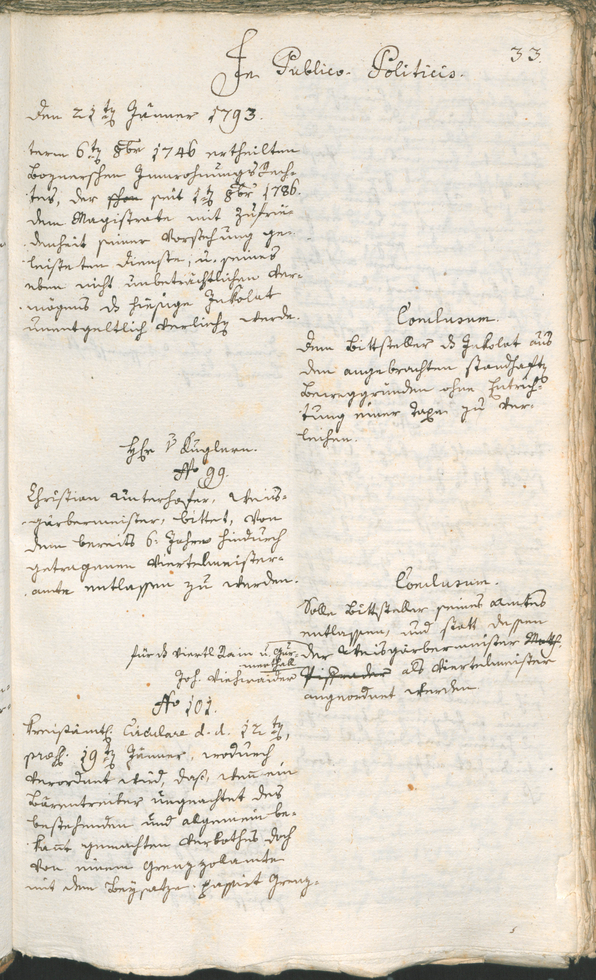 33.
In Publico-Politicis.
Den 21ten Jänner 1793.
term 6ten 8br 1746 ertheilten
Boznerschen Innwohnungs Rech-
tes, der schon seit 1ten 8br 1786.
dem Magistrate mit Zufrie-
denheit seiner Vorsehung ge-
leisteten Dienste, u. seines
eben nicht unbeträchtlichen Ver-
mögens ds hiesige Inkolat
unentgeltlich verliehen werde.
Conclusum.
Dem Bittsteller ds Inkolat aus
den angebrachten standhaften
Beweggründen ohne Entrich-
tung einer Taxe zu ver-
leihen.
Hr v Kuglern.
No 99.
Christian Unterhofer, Weis-
gärbermeister, bittet, von
dem bereits 6. Jahre hindurch
getragenen Viertelmeister-
amte entlassen zu werden.
Conclusum.
Solle Bittsteller seines Amtes
entlassen, und statt dessen
der Weisgärbermeister Math.
als Viertelmeister
angeordnet werden
für ds Viertl Rain u.
Joh. Viehweider
No 101.
Kreisämtl. Circulare d. d. 12ten,
praes. 19ten Jänner, wodurch
verordnet wird, daß, wenn ein
Bärentreiber ungeachtet des
bestehenden und allgemein be-
kannt gemachten Verbothes doch
von einem Grenzzolamte
mit dem Beysatze: passirt Grenz-